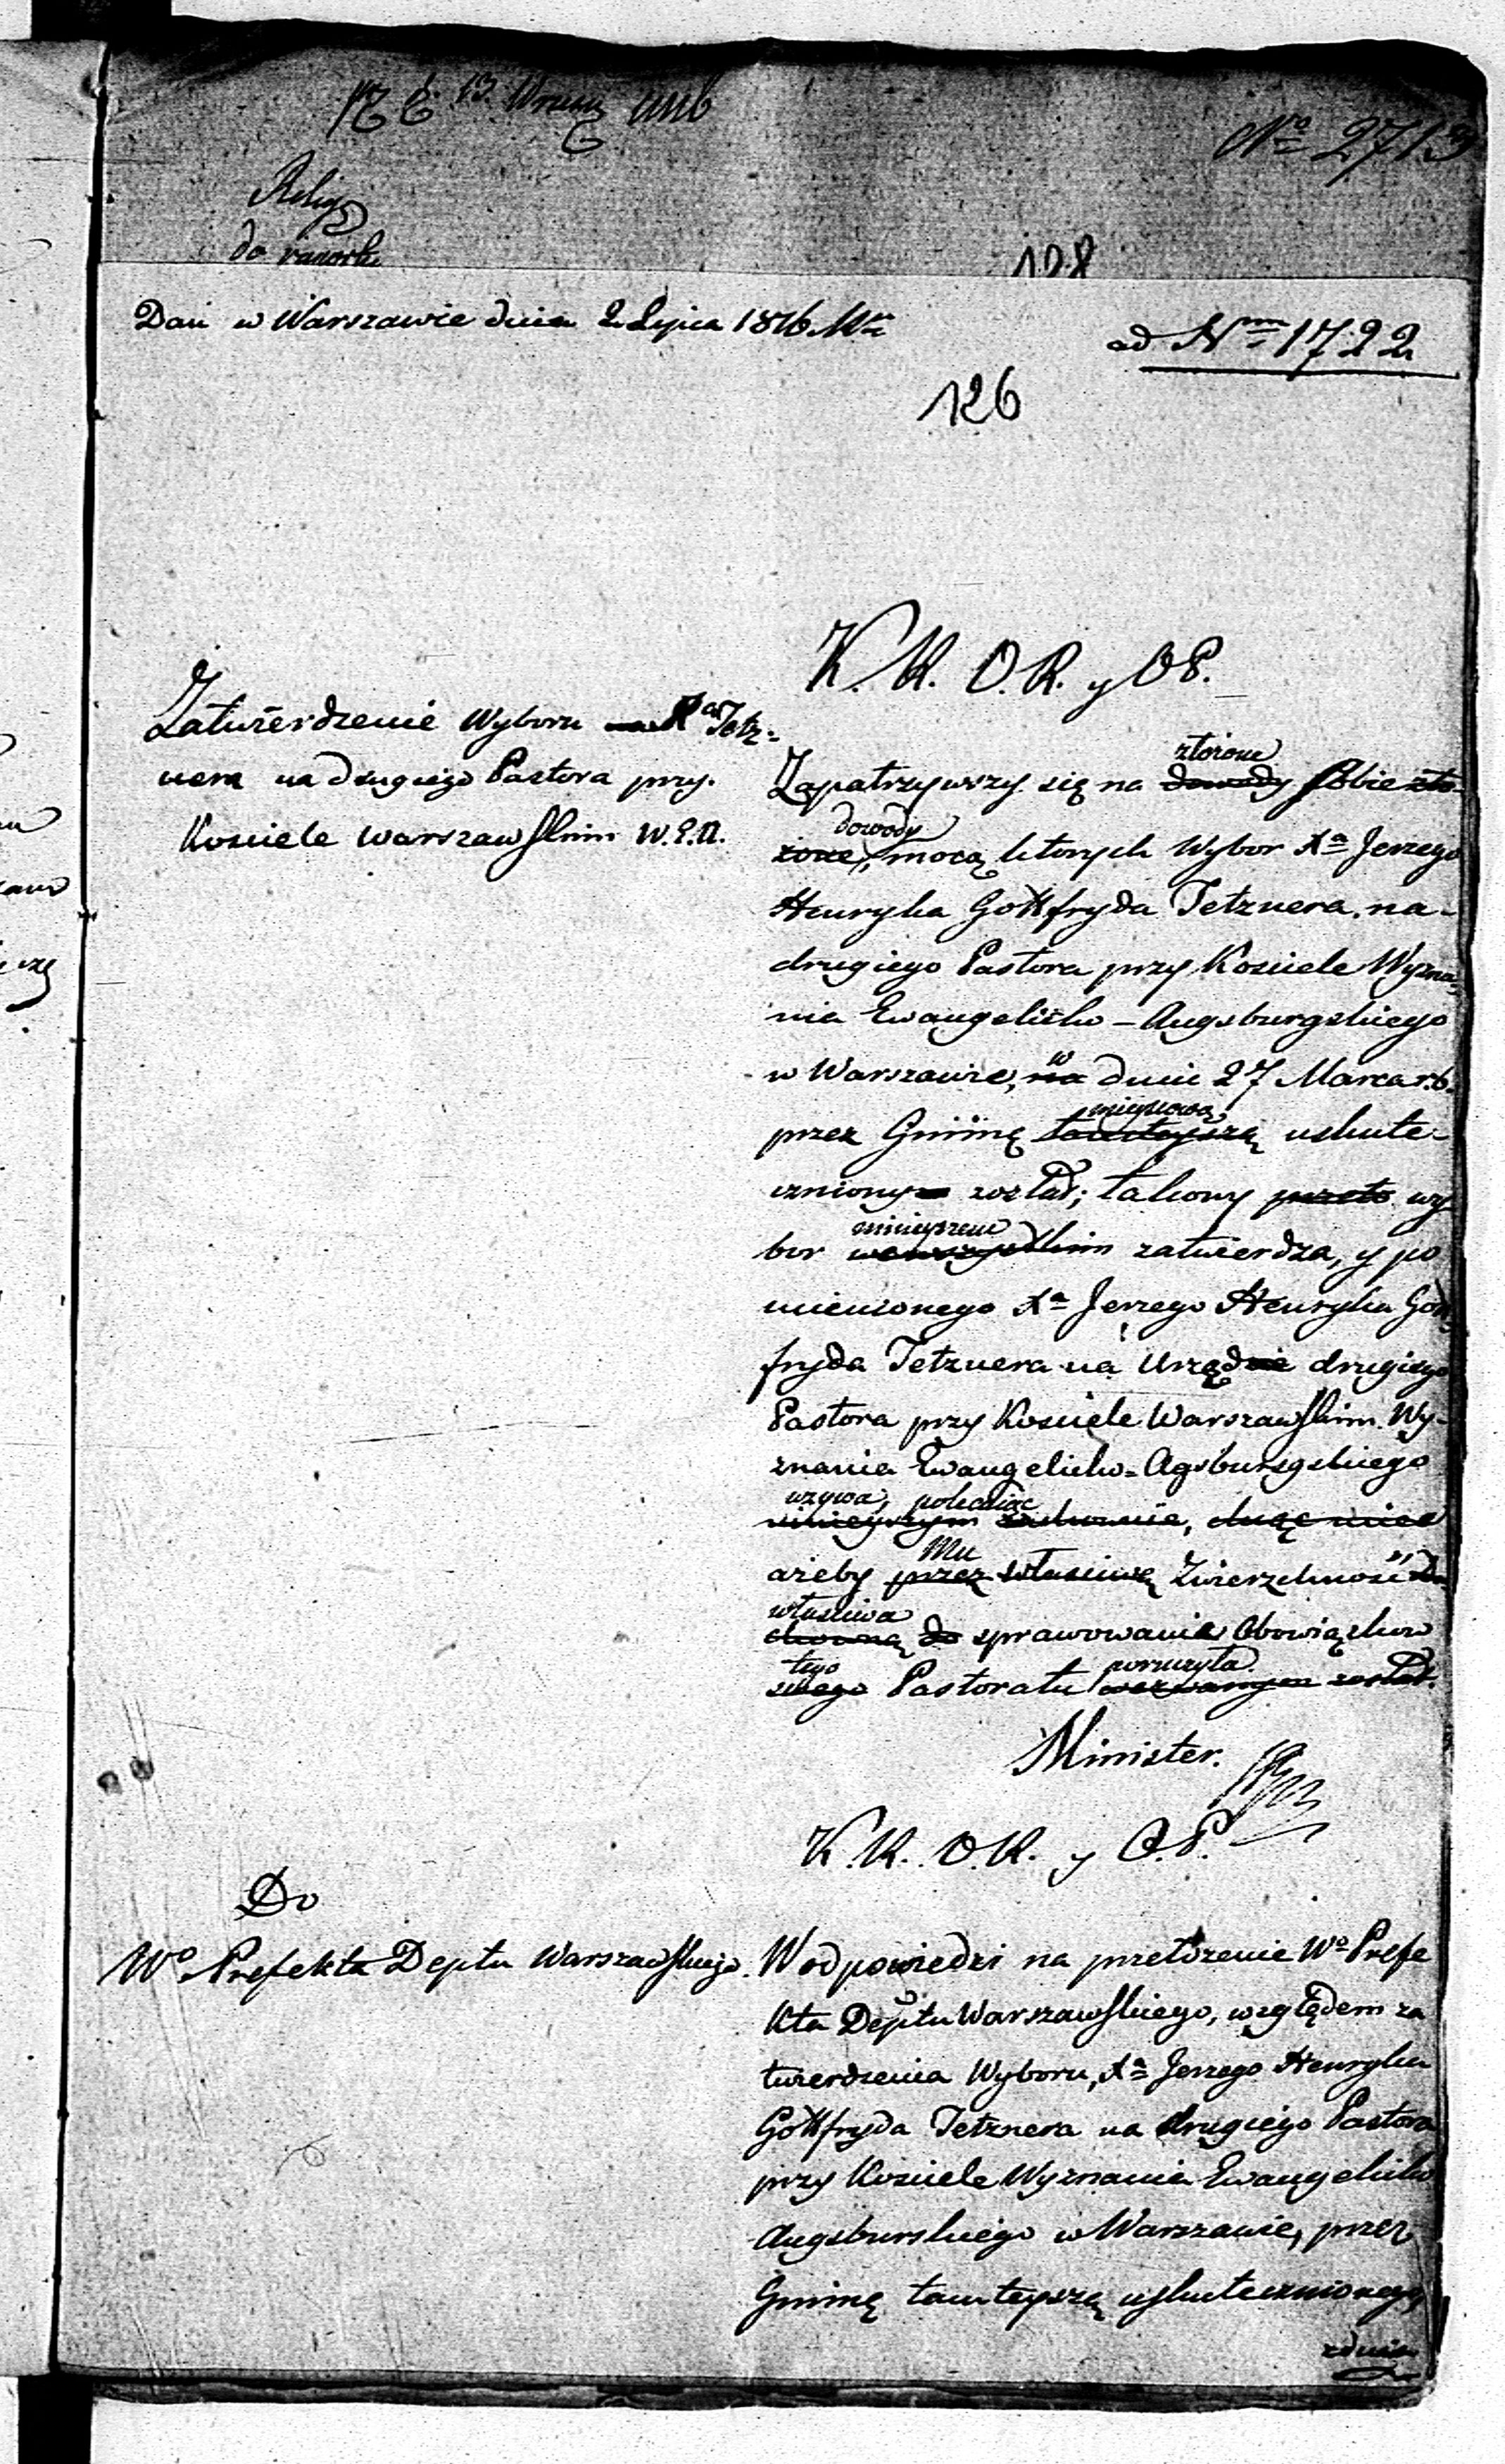 13. 1816
Nº 2713
Relig
do
128
Dan w Warszawie dnia 2 Lipca 1816
ad Nm 1722
126
K. R. O. R. y OP.
Zatwierdzenie Wyboru Xa Tetz-
nera na drugiego Pastora przy.
Kosciele Warszawskim W.E.A.
złożone
Zapatrzywszy się na dowody sobie zło-
dowody
żone, mocą ktorych Wybor Xa Jerzego
Henryka Gottfryda Tetznera, na-
drugiego Pastora przy Kosciele Wyzna-
nia Ewangelicko-Augsburgskiego
w
w Warszawie, na dniu 27 Marca r.b.
mieyscową
przez Gminę tamteyszą uskute-
czniony został; takowy przeto wy
ninieyszem
bor wewszystkim zatwierdza, y po
mienionego Xa Jerzego Henryka Gott
fryda Tetznera na Urzędnie drugiego
Pastora przy Kosciele Warszawskim Wy-
znania Ewangelicko-Agsburgskiego
wzywa, polecaiąc
ninieyszym chcąc mieć
Mu
ażeby przez własciwą Zwierzchność Du
własciwa
chowną do sprawowania Obowiązkow
tego poruczyła.
swego Pastoratu wezwanym został.
Minister.
K. R. O. R. y O.P.
Do
Wº Prefekta Deptu Warszawskiego.
W odpowiedzi na przełożenie Wº Prefe
kta Deptu Warszawskiego, względem za
twierdzenia Wyboru, Xa Jerzego Henryka
Gottfryda Tetznera na drugiego Pastora
przy Kosciele Wyznania Ewangelicko
Augsburskiego w Warszawie, przez
Gminę tamteyszą uskutecznionego,
z dnia